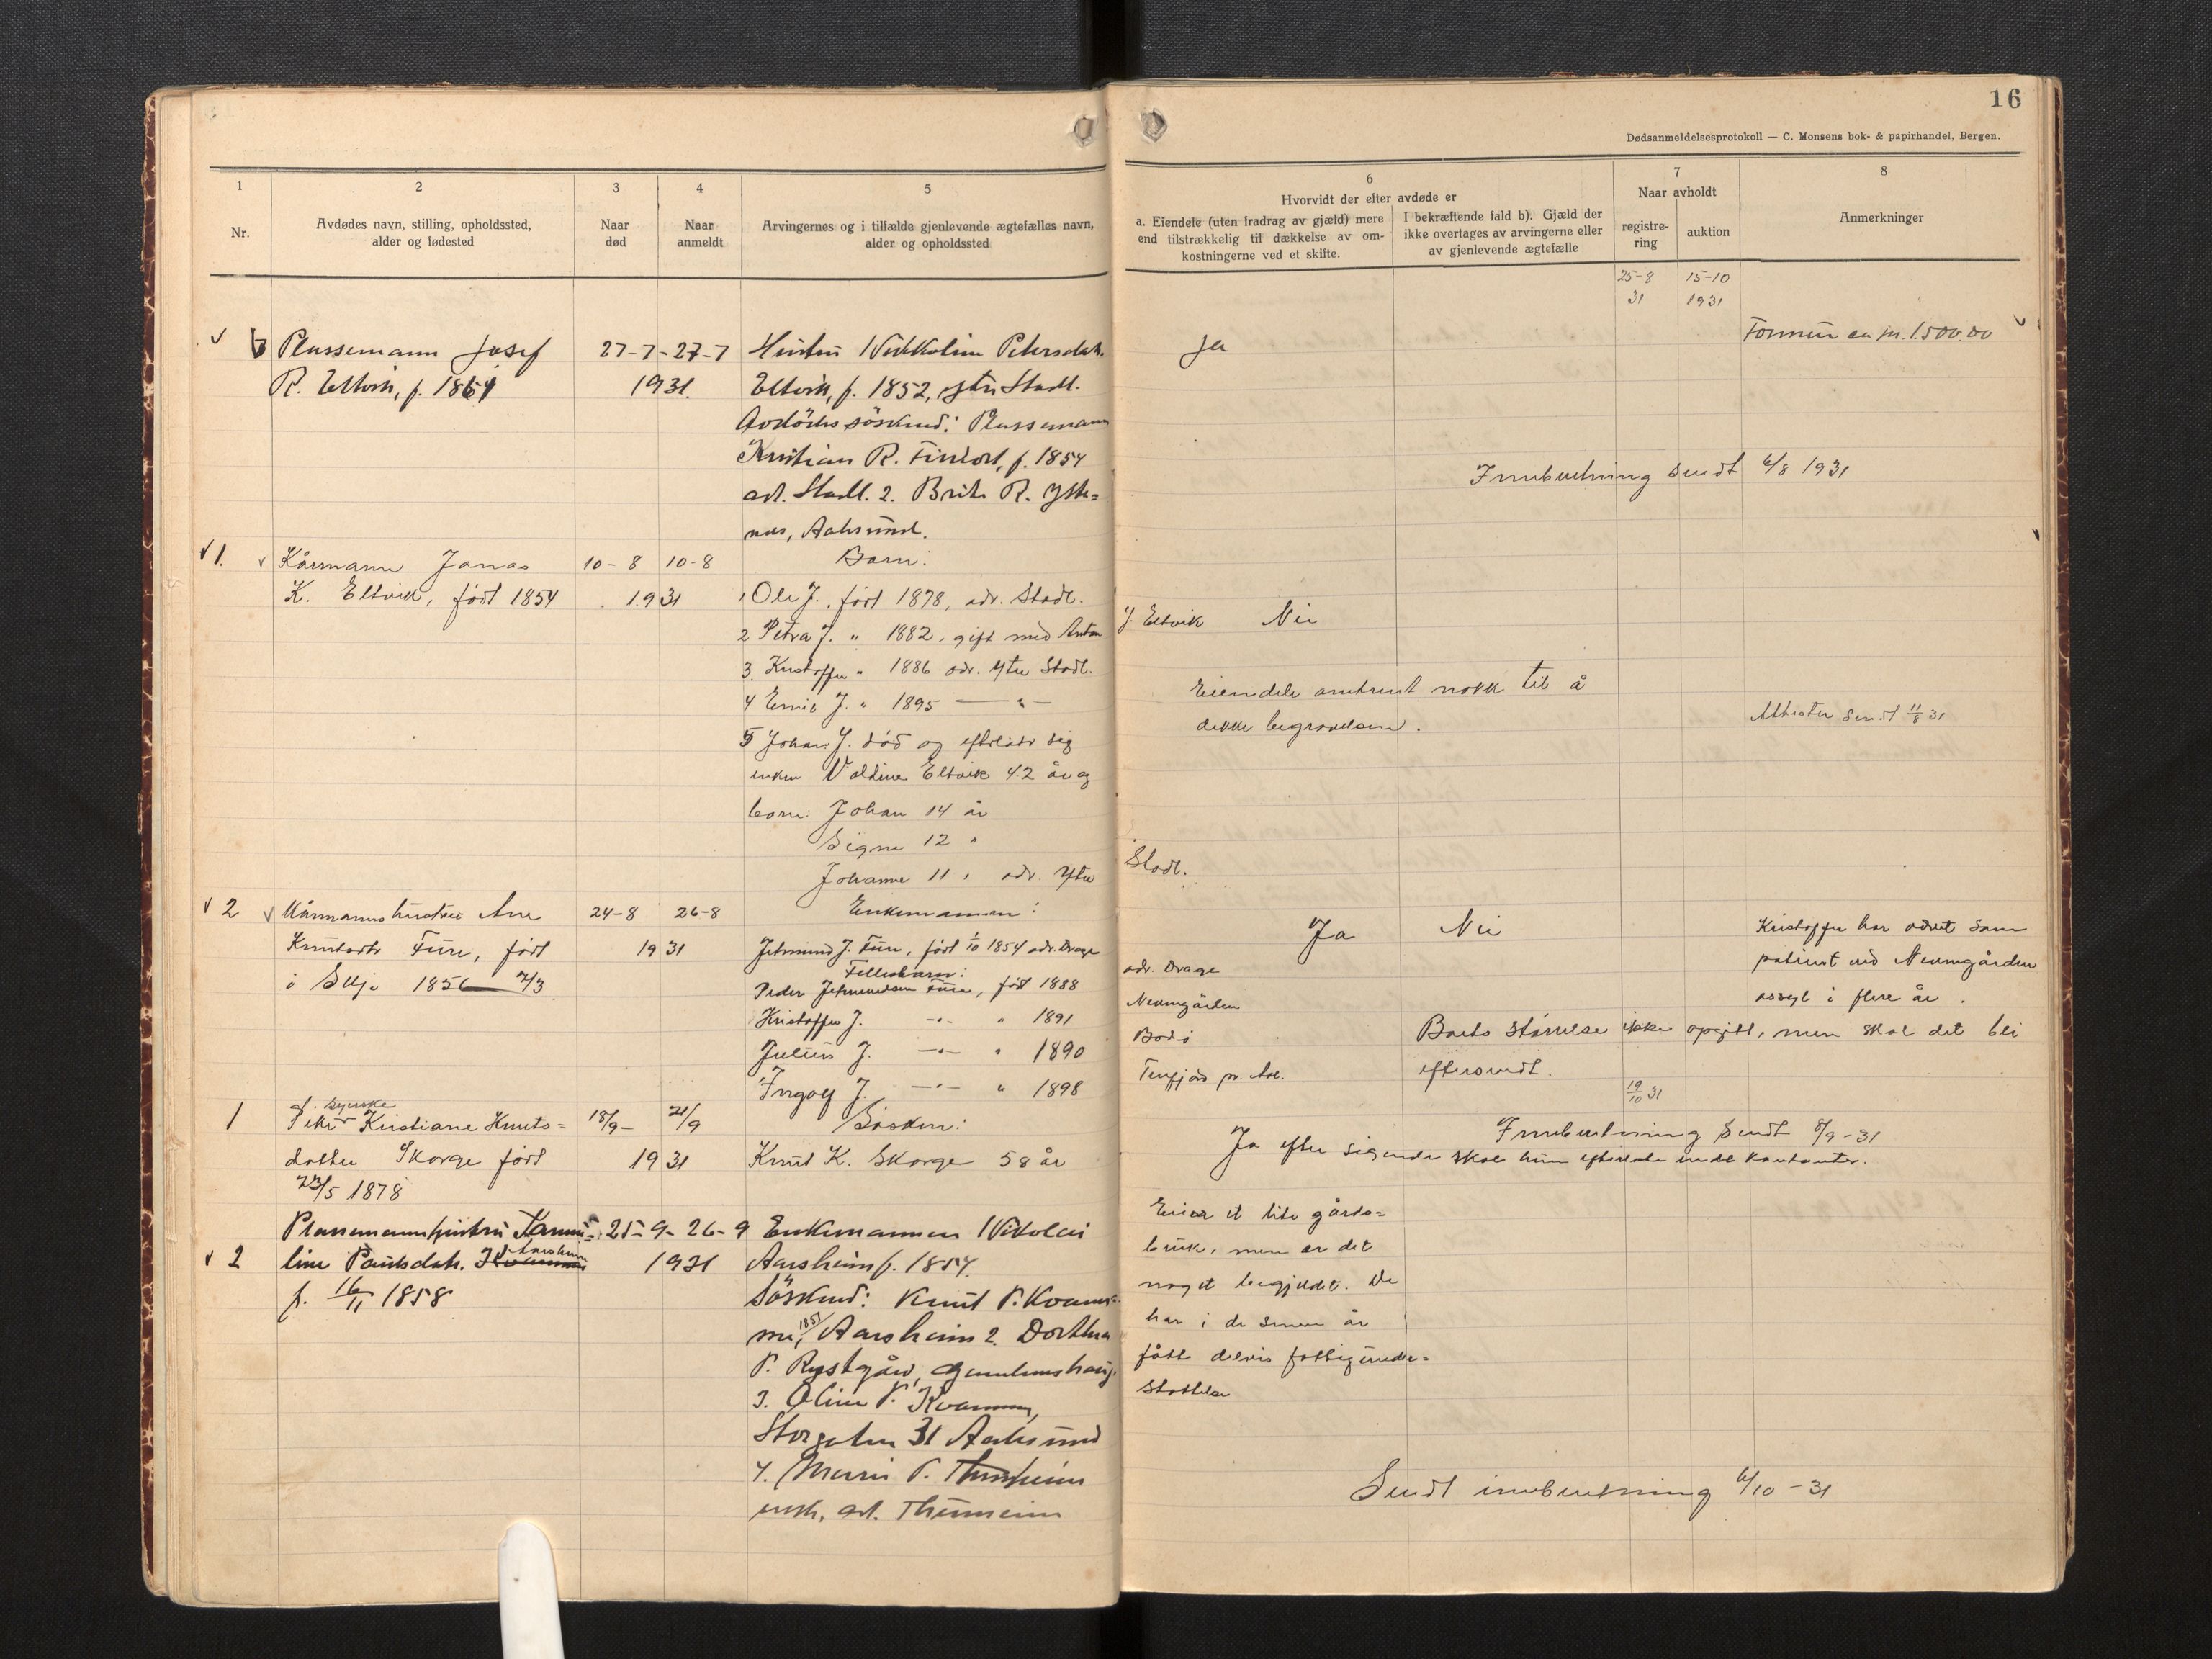 16
Dødsanmeldelsesprotokoll — C. Monsens bok- & papirhandel, Bergen.
1
Nr.
2
Avdødes navn, stilling, opholdssted,
alder og fødested
3
Naar
død
4
Naar
anmeldt
5
Arvingernes og i tilfælde gjenlevende ægtefælles navn,
alder og opholdssted
6
Hvorvidt der efter avdøde er
a. Eiendele (uten fradrag av gjæld) mere
end tilstrækkelig til dækkelse av om-
kostningerne ved et skifte.
I bekræftende fald b). Gjæld der
ikke overtages av arvingerne eller
av gjenlevende ægtefælle
7
Naar avholdt
registre-
ring
auktion
8
Anmerkninger
25-8 15-10
31 1931
Plassemann Josef 27-7-27-7 Hustru Petersdatr. Ja
R. Eltvik, f. 1864 1931. Eltvik, f. 1852, ytre Stadl.
Avdødes søskend: Plassemann
Kristian R. f. 1854
ad. Stadl. 2. Brite R. Ytre=
nes, Aalesund.
Innberetning sendt 6/8 1931
√1. Kårmann Jonas 10-8 10-8 Barn:
K. Eltvik, født 1854 1931 1 Ole J., født 1878, adr. Stadl.
2 Petra J. " 1882, gift med Anton J. Eltvik Nei
3. Kristoffer " 1886 adr. Ytre Stadl.
4 Emil J. " 1895 — " —
Eiendele omtrent nokk til å
dekke begravelsen.
Attester sendt 11/8 31
5 Johan J. død og efterlater sig
enken Valdine Eltvik 42 år og
born: Johan 14 år
Signe 12 "
Johanne 11 " adr. Ytre Stadl.
√ 2 √ Kårmanns hustru Ane 24-8 26-8 Enkemannen: Ja Nei
Knutsdtr Fure, født 1931 Jetmund J. Fure, født 1/10 1854 adr. Drage
i Selje 1856 7/3 Fellesbarn:
Peder Jetmundsen Fure, født 1888 adr. Drage
Kristoffer J. -"- " 1891 Neumgården
Julius J. -"- " 1890 Bodø
Ingolf J. -"- " 1898 Tenfjord pr. Aal.
Kristoffer har været som
patient ved Neumgården
asyl i flere år.
Boets størrelse ikke opgitt, men skal det bli
eftersendt.
19/10 31
Innberetning sendt 8/9-31
1 Kristiane Knuts= 18/9- 21/9 Søsken:
datter Skorge født 1931 Knut K. Skorge 58 år
23/5 1878
Ja efter sigende skal hun efterlate endel kontanter.
Plassemannshustru 25-9- 26-9 Enkemannen Nikolai
√ 2 line Paulsdatr. Aarsheim 1931 Aarsheim f. 1854.
f. 16/11 1858 Søskend: Knut P. Kvamme
1851 Aarsheim 2. Dorthea
P. Rystgård,
3. Oline P. Kvamme,
Storgaten 31 Aalesund
4. Marie P. Thunheim
enke, ad. Thunheim
Eier et lite gårds=
bruk, men er det
noget begjeldet. De
har i de senere år
fått delvis fattigunder=
støttelse
Sendt innberetning 6/10-31